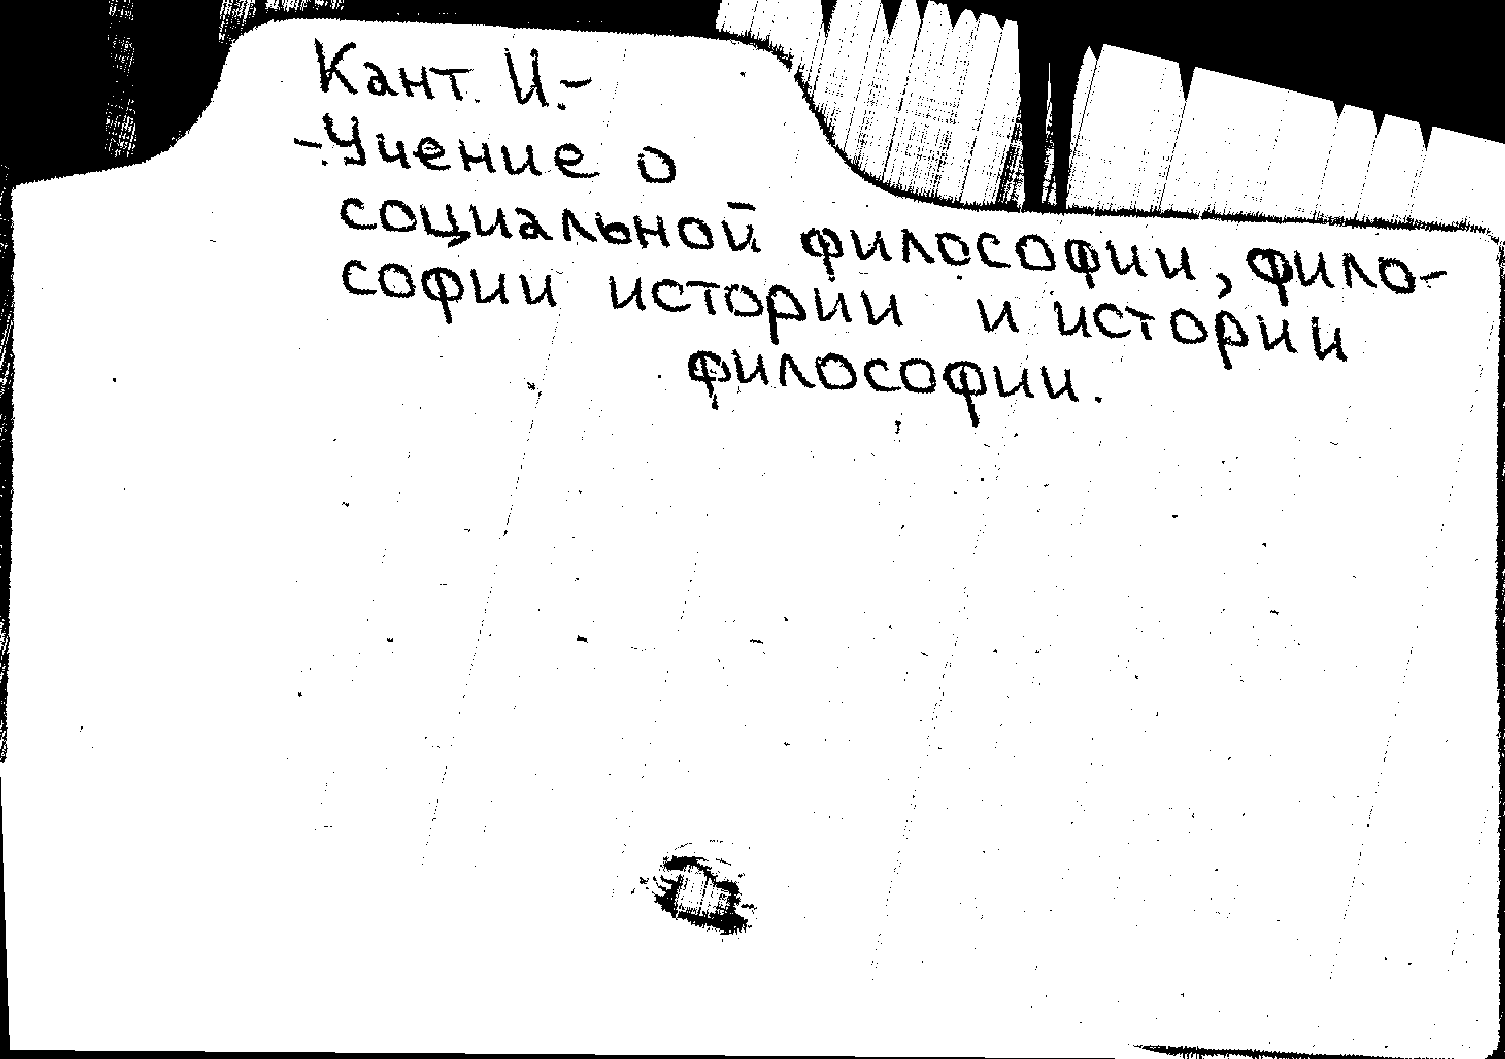 Кант. И.-
-Учение о
социальной философии, фило-
софии истории и истории
философии.